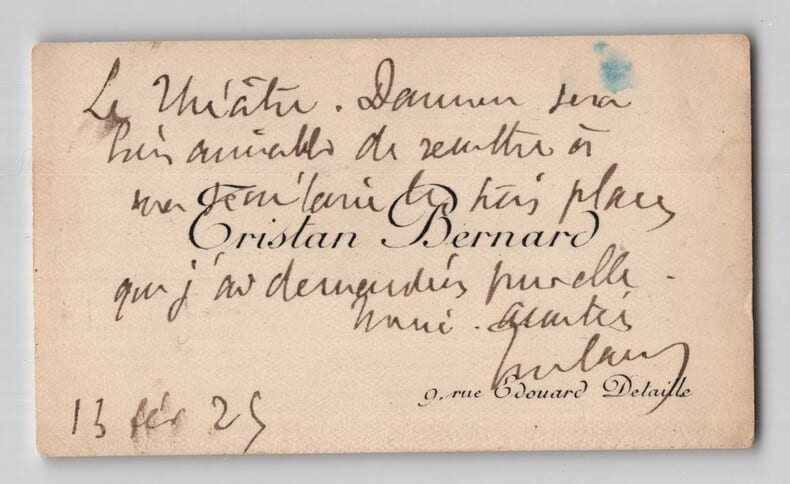 Le Théâtre. Daunou sera
bien aimable de remettre à
ma secrétaire les trois places
Tristan Bernard
que j'ai demandées pour elle.
Merci.
9, rue Edouard Detaille
13 fév 25